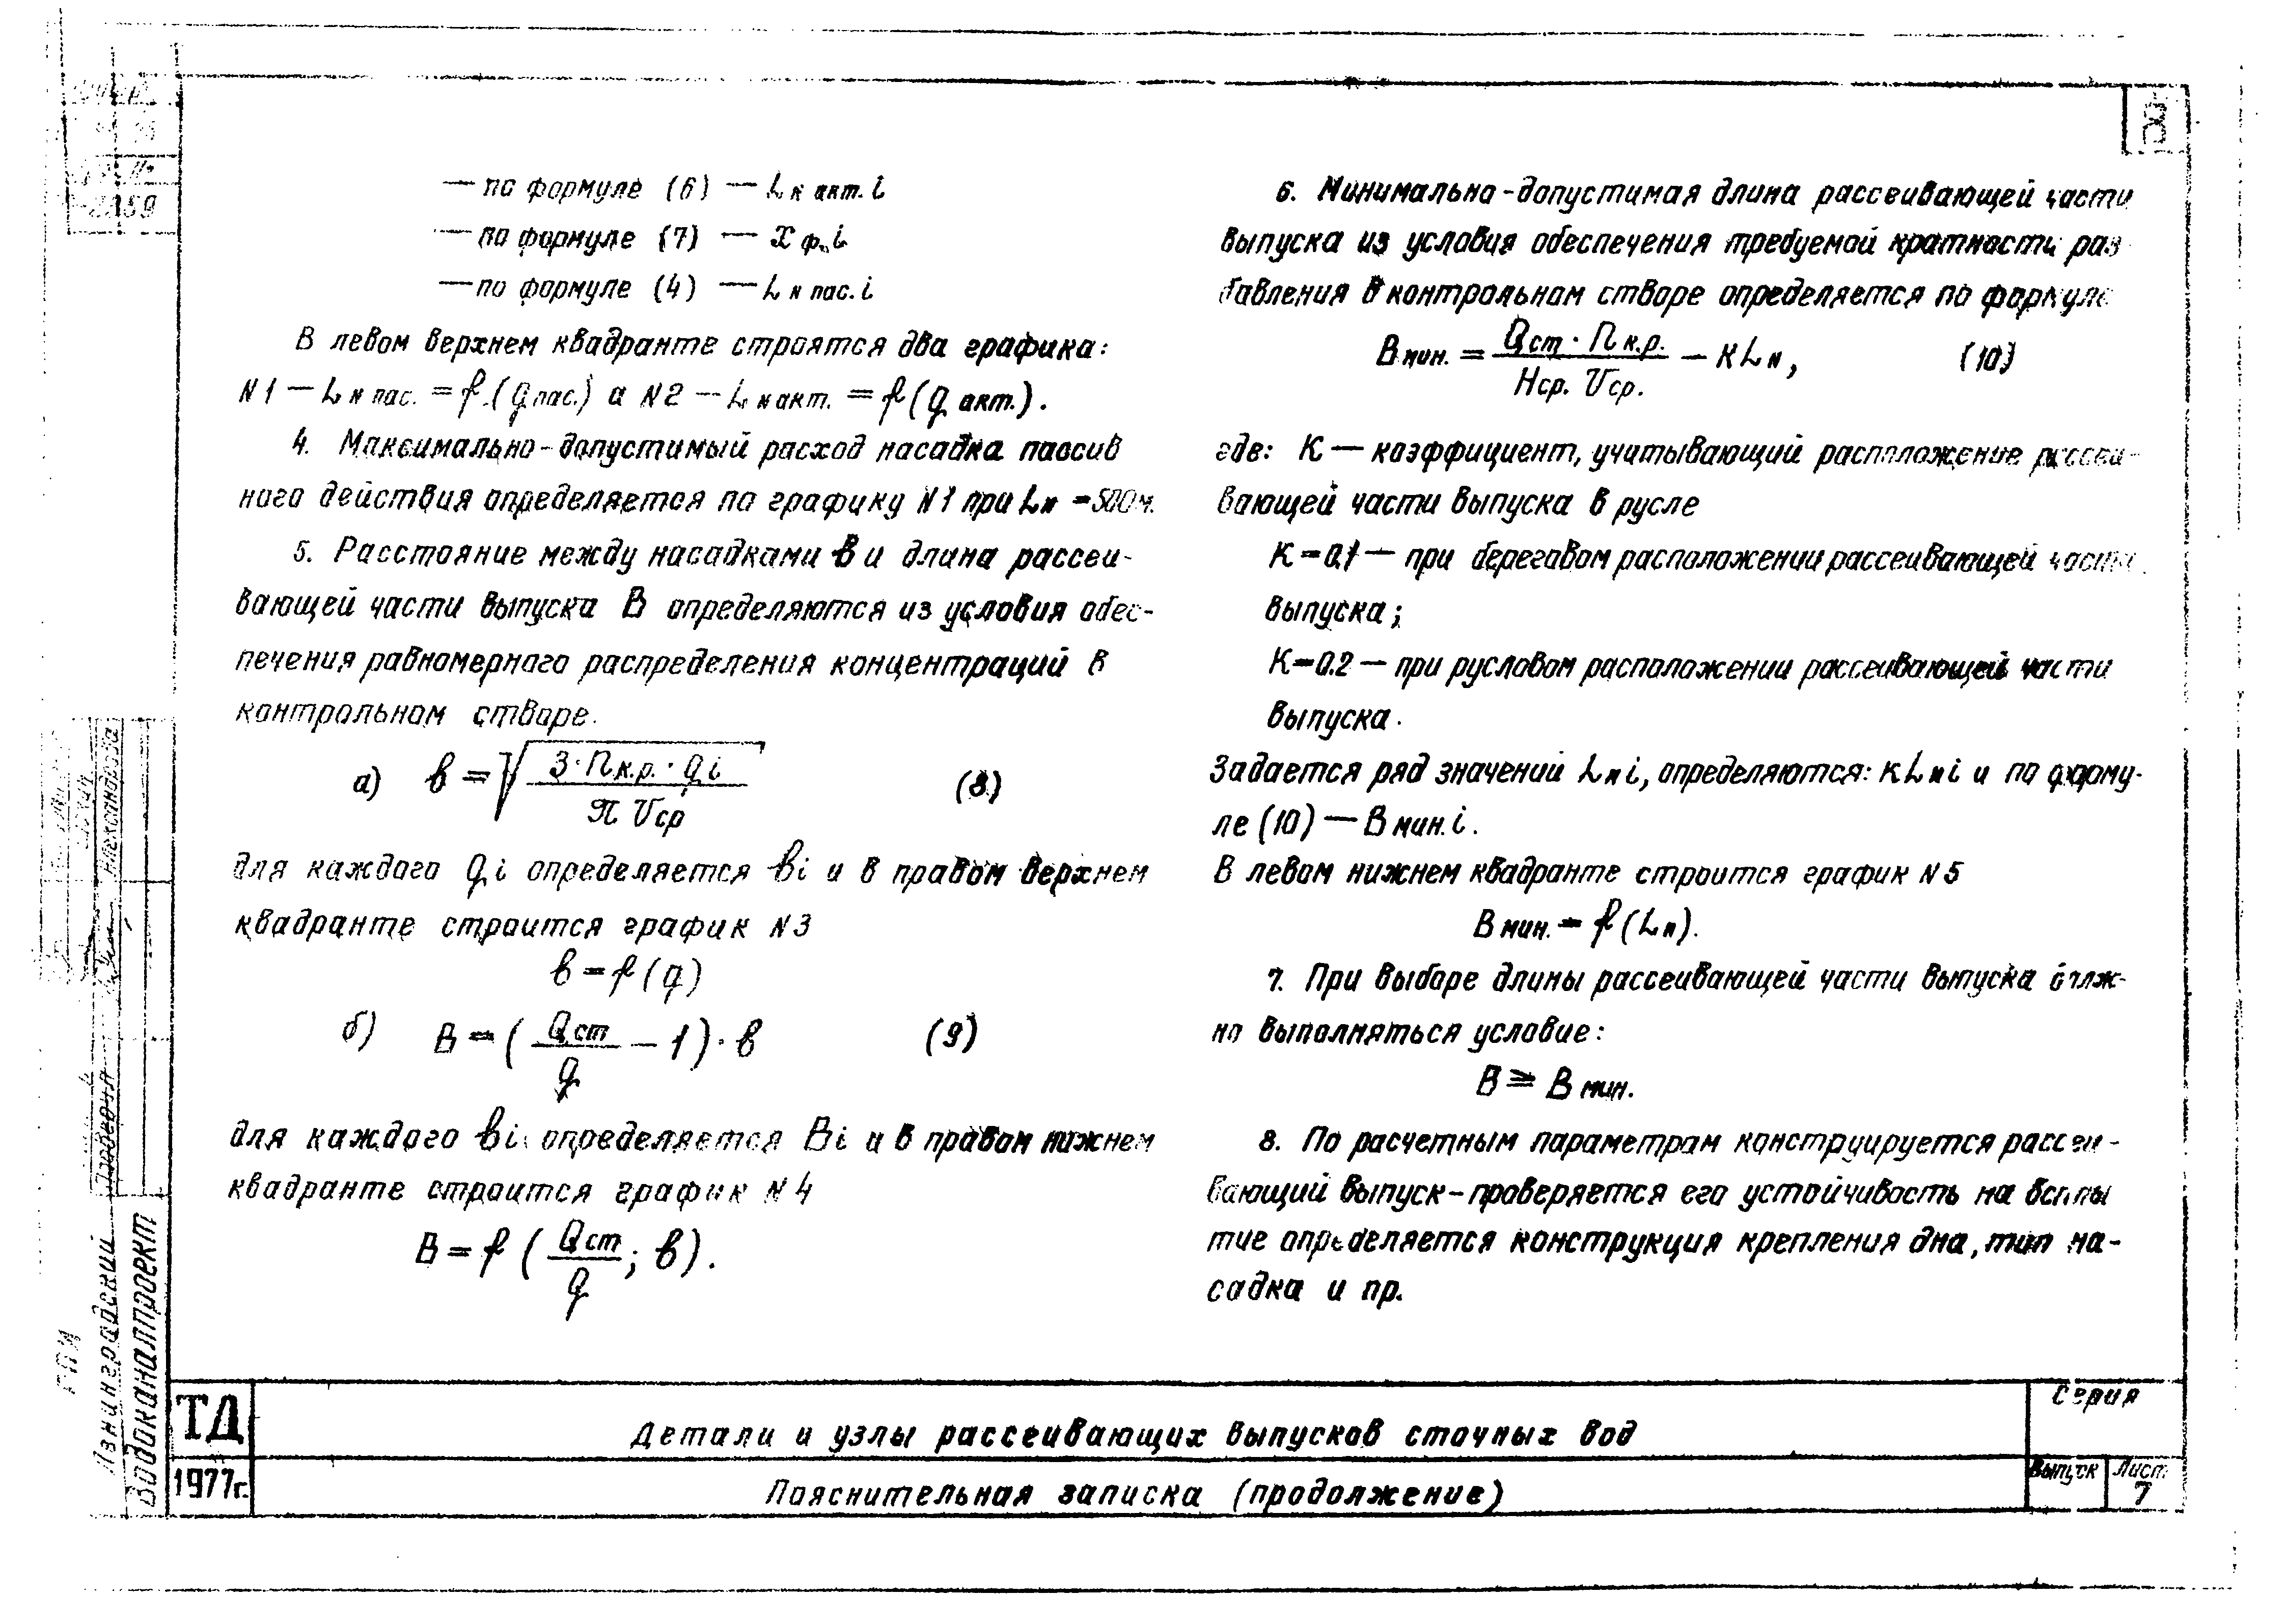 — по формуле (6) — Lн акт. i
— по формуле (7) — Xф. i
— по формуле (4) — Lн пас. i
В левом верхнем квадранте строятся два графика:
N1 — Lн пас. = f (q пас.) а N2 — Lн акт. = f (q акт.).
4. Максимально-допустимый расход насадка пассив
ного действия определяется по графику N1 при Lн = 500м.
5. Расстояние между насадками в и длина рассеи-
вающей части выпуска В определяются из условия обес-
печения равномерного распределения концентраций в
контрольном створе.
а) в = √(3·Пк.р.·qi / π Vср) (8)
для каждого qi определяется вi и в правом верхнем
квадранте строится график N3
в = f (q)
б) В = (Qст / q − 1)·в (9)
для каждого вi определяется Вi и в правом нижнем
квадранте строится график N4
В = f (Qст / q ; в).
6. Минимально-допустимая длина рассеивающей части
выпуска из условия обеспечения требуемой кратности раз
бавления в контрольном створе определяется по формуле
Вмин. = Qст·Пк.р. / Нср. Vср. − КLн, (10)
где: К — коэффициент, учитывающий расположение рассеи-
вающей части выпуска в русле
К = 0.1 — при береговом расположении рассеивающей части
выпуска;
К = 0.2 — при русловом расположении рассеивающей части
выпуска.
Задается ряд значений Lнi, определяются: КLнi и по форму-
ле (10) — Вмин. i.
В левом нижнем квадранте строится график N5
Вмин. = f (Lн).
7. При выборе длины рассеивающей части выпуска долж-
но выполняться условие:
В ≥ Вмин.
8. По расчетным параметрам конструируется рассеи-
вающий выпуск-проверяется его устойчивость на всплы
тие определяется конструкция крепления дна, тип на-
садка и пр.
ТД
1977г.
Детали и узлы рассеивающих выпусков сточных вод
Пояснительная записка (продолжение)
Серия
Выпуск
Лист
7
Ленинградский
Водоканалпроект
ГПИ
Проверил
Александрова